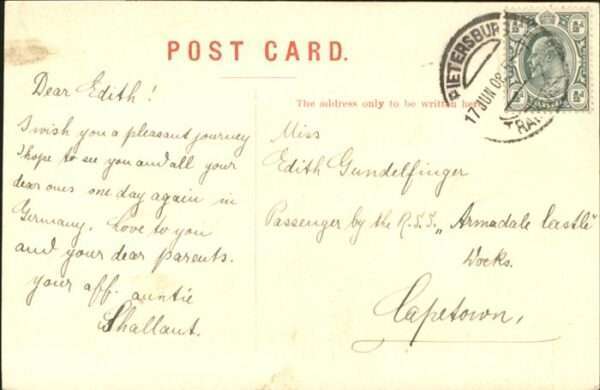 POST CARD.
PIETERSBURG
17 JUN 08
TRA
The address only to be written here
Dear Edith!
I wish you a pleasant journey
I hope to see you and all your
dear ones one day again in
Germany. Love to you
and your dear parents.
your aff. auntie
Shallant.
Miss
Edith Gundelfinger
Passenger by the R.S.S. „Armadale Castle"
Docks.
Capetown,